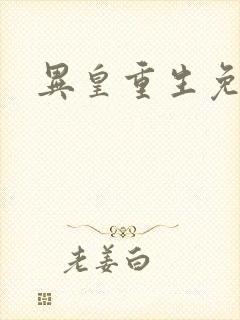 異皇重生免
老姜白